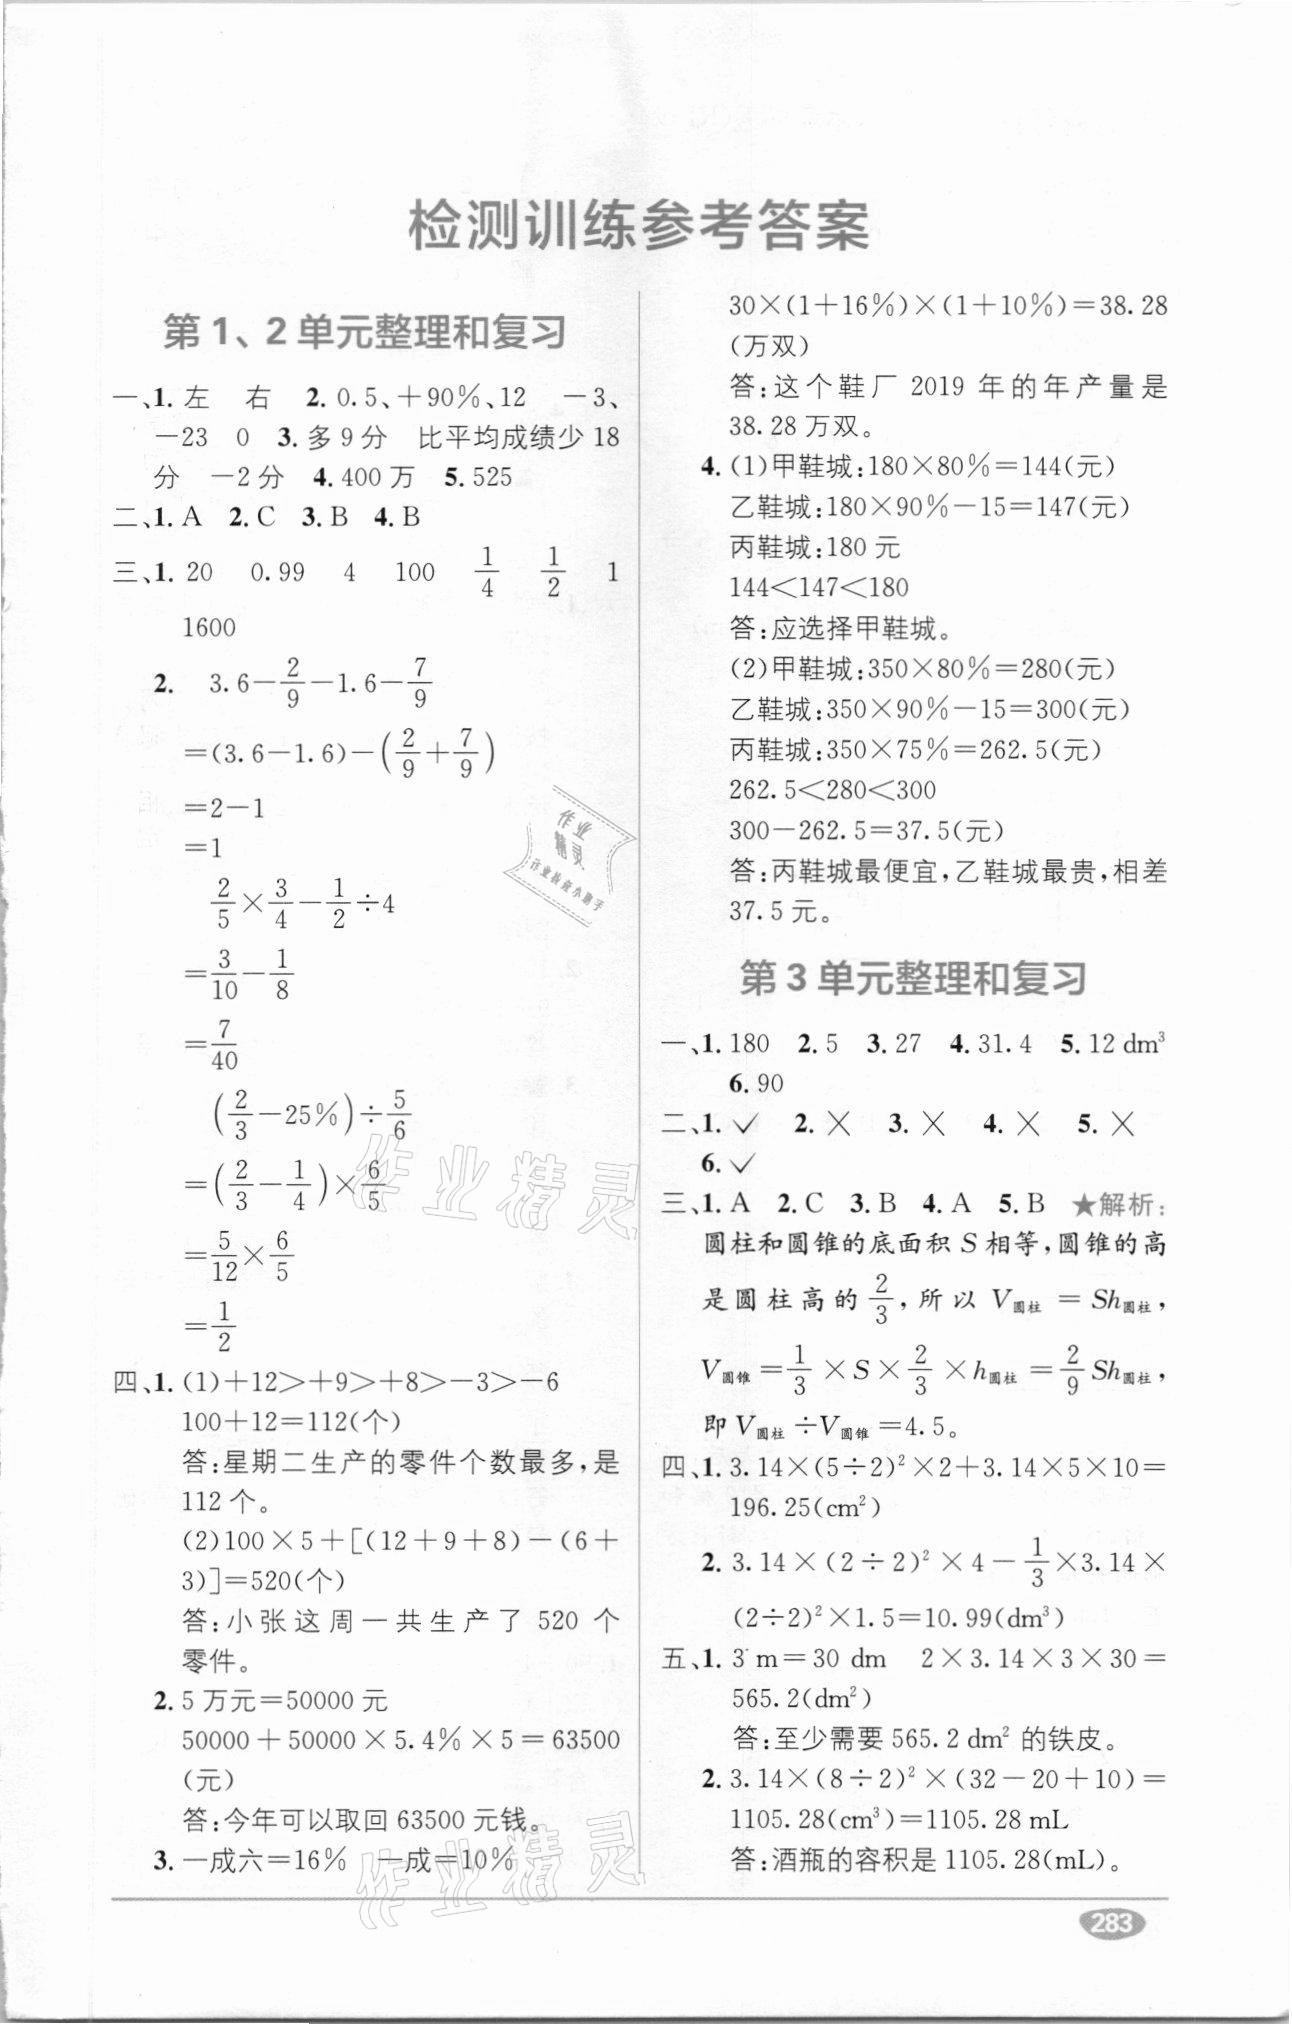 检测训练参考答案
第1、2单元整理和复习
一、1. 左 右 2. 0.5、+90%、12 -3、
-23 0 3. 多9分 比平均成绩少18
分 -2分 4. 400万 5. 525
二、1. A 2. C 3. B 4. B
三、1. 20 0.99 4 100 1/4 1/2 1
1600
2. 3.6-2/9-1.6-7/9
=(3.6-1.6)-(2/9+7/9)
=2-1
=1
2/5×3/4-1/2÷4
=3/10-1/8
=7/40
(2/3-25%)÷5/6
=(2/3-1/4)×6/5
=5/12×6/5
=1/2
四、1. (1)+12>+9>+8>-3>-6
100+12=112(个)
答:星期二生产的零件个数最多,是
112个。
(2)100×5+[(12+9+8)-(6+
3)]=520(个)
答:小张这周一共生产了520个
零件。
2. 5万元=50000元
50000+50000×5.4%×5=63500
(元)
答:今年可以取回63500元钱。
3. 一成六=16% 一成=10%
30×(1+16%)×(1+10%)=38.28
(万双)
答:这个鞋厂2019年的年产量是
38.28万双。
4. (1)甲鞋城:180×80%=144(元)
乙鞋城:180×90%-15=147(元)
丙鞋城:180元
144<147<180
答:应选择甲鞋城。
(2)甲鞋城:350×80%=280(元)
乙鞋城:350×90%-15=300(元)
丙鞋城:350×75%=262.5(元)
262.5<280<300
300-262.5=37.5(元)
答:丙鞋城最便宜,乙鞋城最贵,相差
37.5元。
第3单元整理和复习
一、1. 180 2. 5 3. 27 4. 31.4 5. 12 dm³
6. 90
二、1. ✓ 2. × 3. × 4. × 5. ×
6. ✓
三、1. A 2. C 3. B 4. A 5. B ★解析:
圆柱和圆锥的底面积S相等,圆锥的高
是圆柱高的2/3,所以V圆柱=Sh圆柱,
V圆锥=1/3×S×2/3×h圆柱=2/9Sh圆柱,
即V圆柱÷V圆锥=4.5。
四、1. 3.14×(5÷2)²×2+3.14×5×10=
196.25(cm²)
2. 3.14×(2÷2)²×4-1/3×3.14×
(2÷2)²×1.5=10.99(dm³)
五、1. 3 m=30 dm 2×3.14×3×30=
565.2(dm²)
答:至少需要565.2 dm²的铁皮。
2. 3.14×(8÷2)²×(32-20+10)=
1105.28(cm³)=1105.28 mL
答:酒瓶的容积是1105.28(mL)。
283
作业
精灵
作业检查小助手
作业精灵
作业精灵